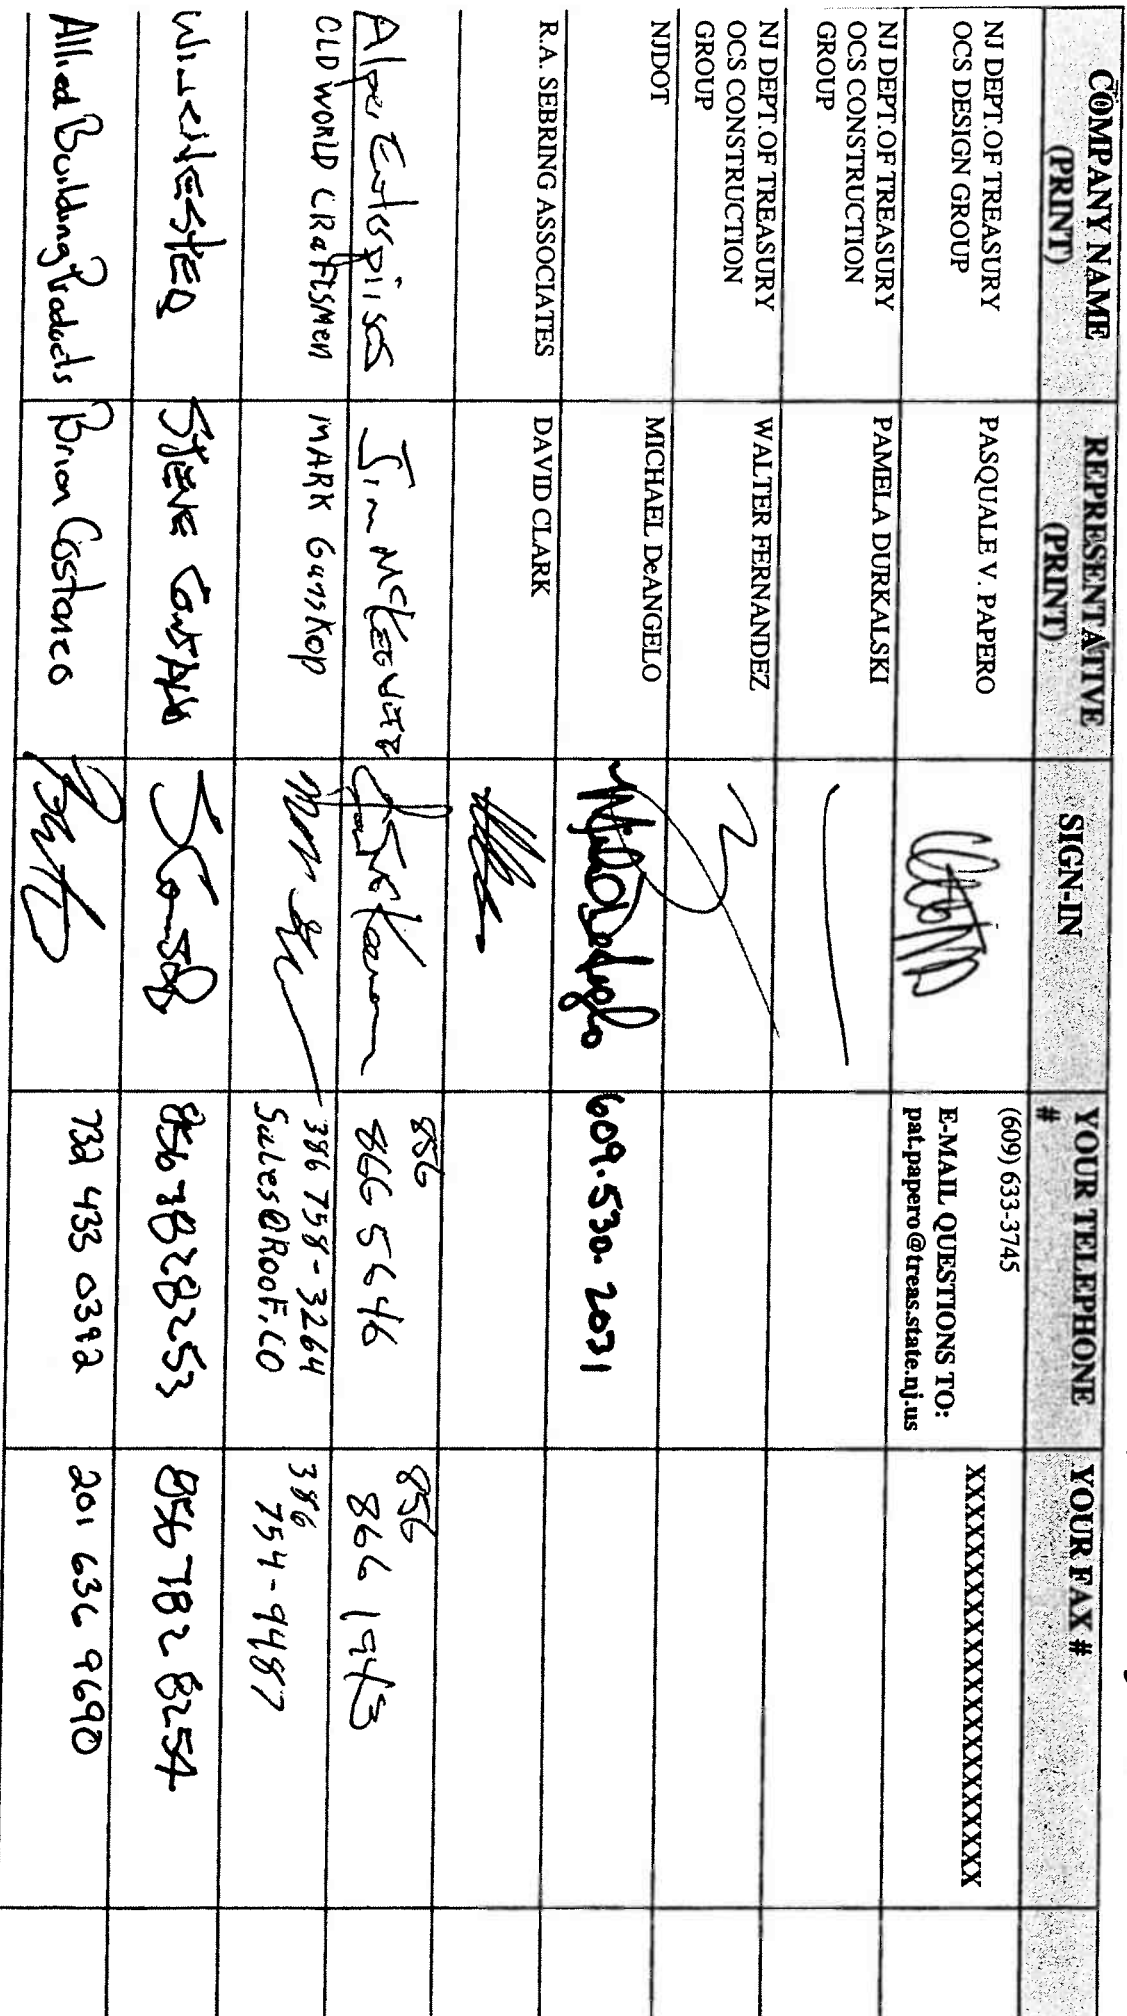 COMPANY NAME (PRINT) REPRESENTATIVE (PRINT) SIGN-IN YOUR TELEPHONE # YOUR FAX #
NJ DEPT.OF TREASURY
OCS DESIGN GROUP
PASQUALE V. PAPERO
(609) 633-3745
E-MAIL QUESTIONS TO:
pat.papero@treas.state.nj.us
XXXXXXXXXXXXXXXXXXXXXXXXX
NJ DEPT.OF TREASURY
OCS CONSTRUCTION
GROUP
PAMELA DURKALSKI
NJ DEPT.OF TREASURY
OCS CONSTRUCTION
GROUP
WALTER FERNANDEZ
NJDOT
MICHAEL DeANGELO
609.530.2031
R.A. SEBRING ASSOCIATES
DAVID CLARK
Alper Enterprises
Jim
856
866 5646
856
866 1943
OLD WORLD CRaFtsMen
MARK Gunskop
386 758-3264
Sales@RooF.CO
386
754-9487
STEVE
856 782 8253
856 782 8254
Allied Building Products
Brian Costanzo
732 433 0392
201 636 9690